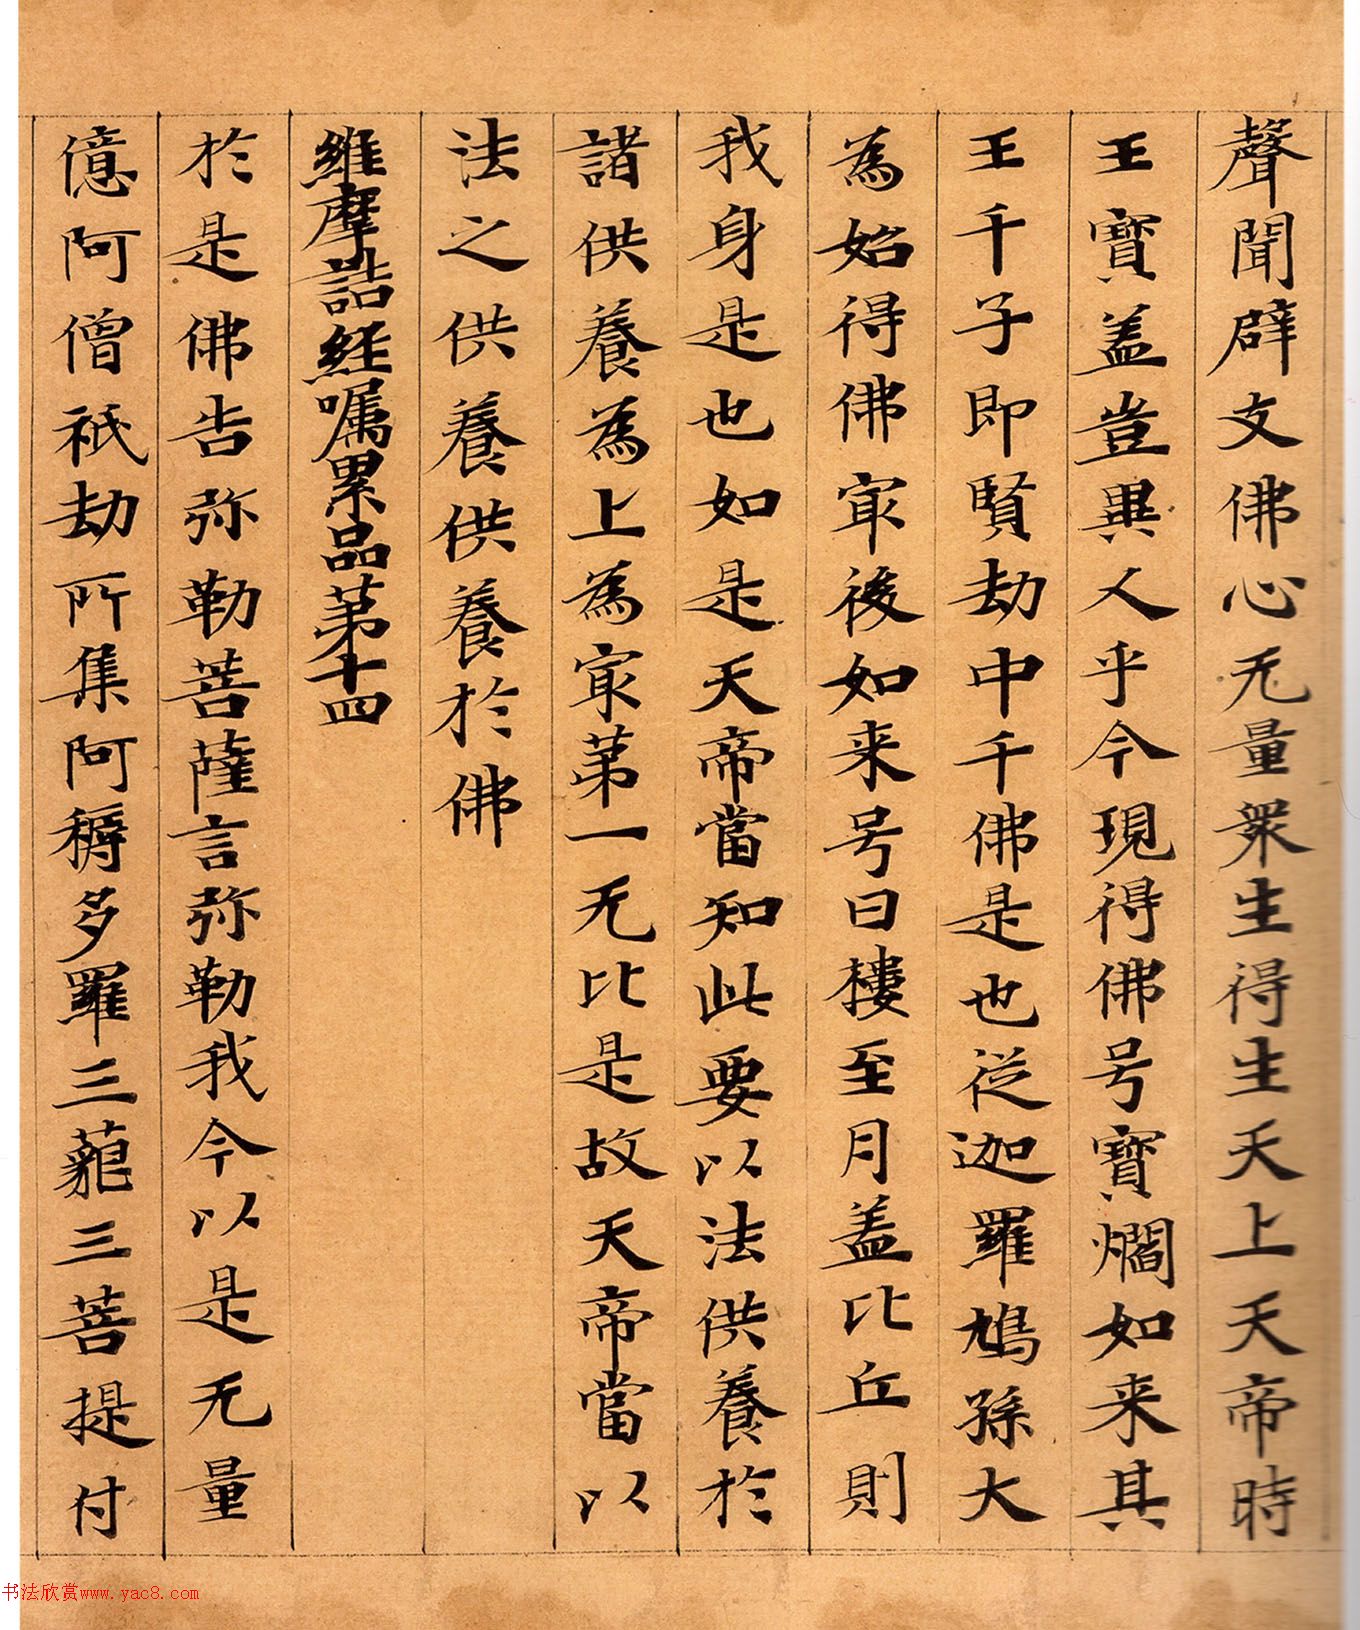 聲聞辟支佛心无量衆生得生天上天帝時
王寶盖豈異人乎今現得佛号寶爓如来其
王千子即賢劫中千佛是也従迦羅鳩孫大
為始得佛冣後如来号曰樓至月盖比丘則
我身是也如是天帝當知此要以法供養於
諸供養為上為冣第一无比是故天帝當以
法之供養供養於佛
維摩詰經嘱累品第十四
於是佛告弥勒菩薩言弥勒我今以是无量
億阿僧祇劫所集阿耨多羅三藐三菩提付
书法欣赏www.yac8.com